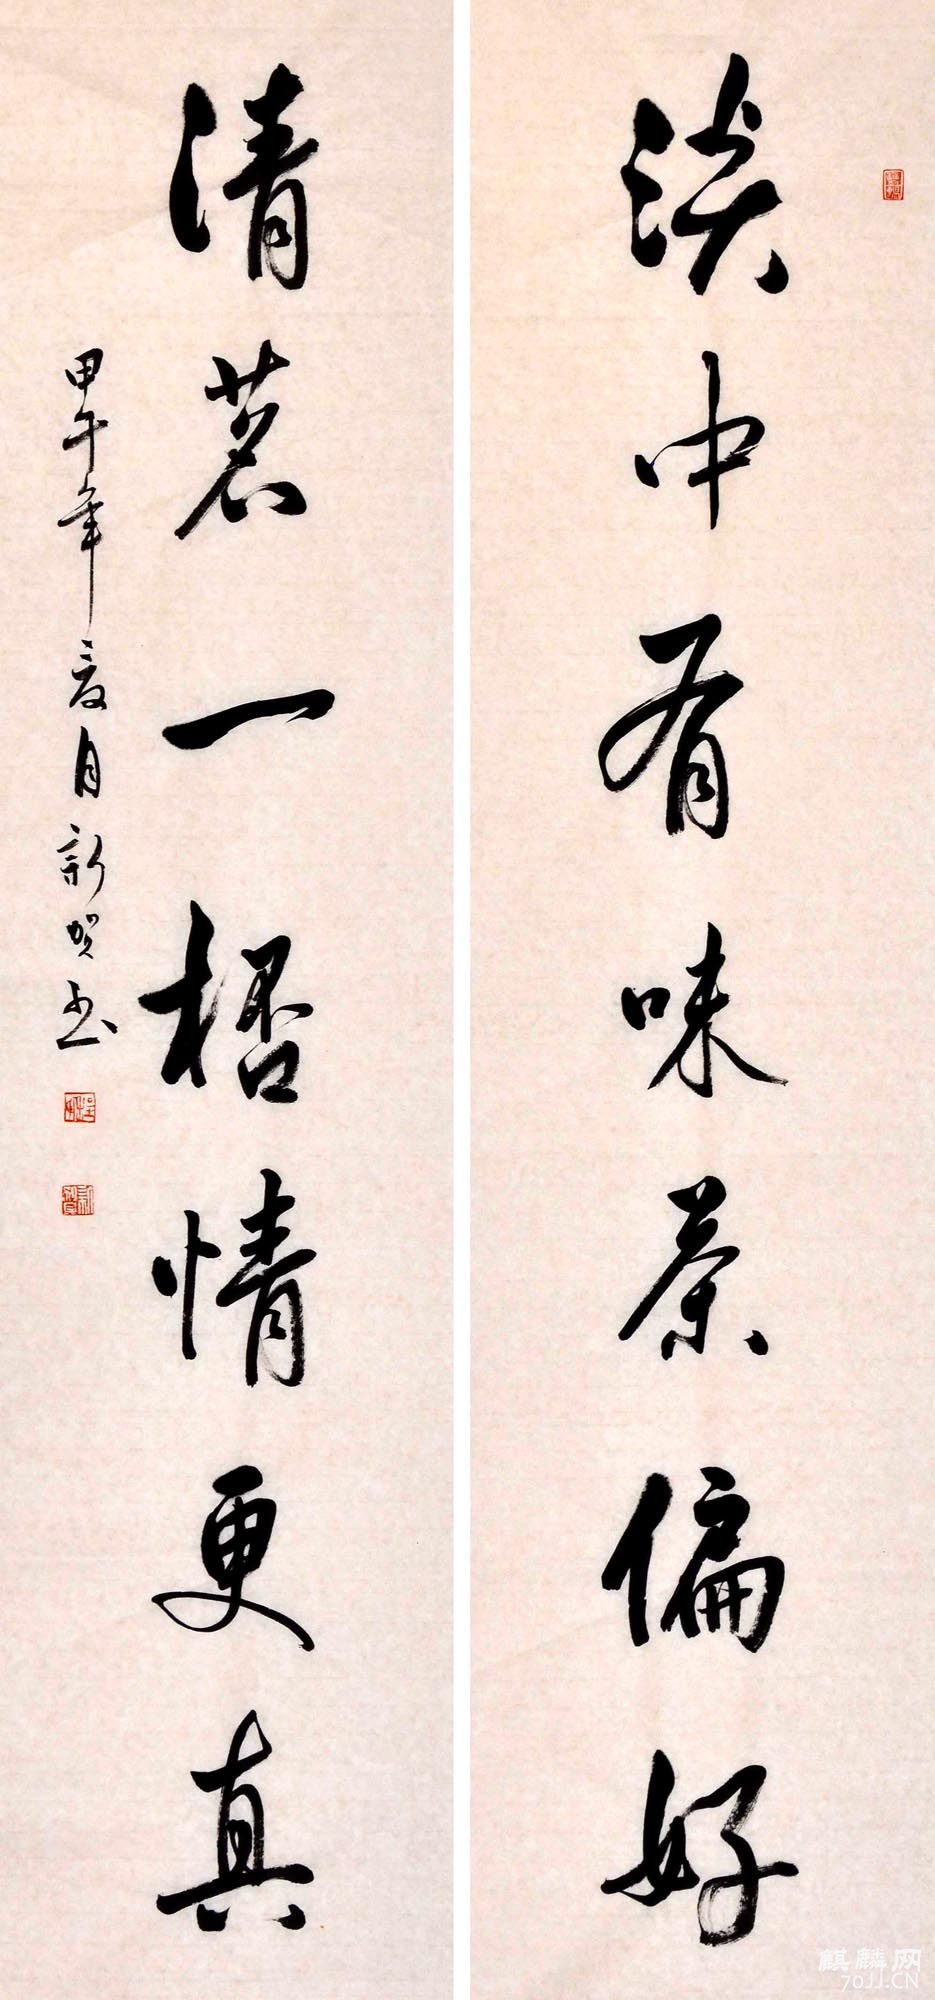 淡中有味茶偏好
清茗一桮情更真
甲午年夏月新贺书
麒麟网
70JJ.CN